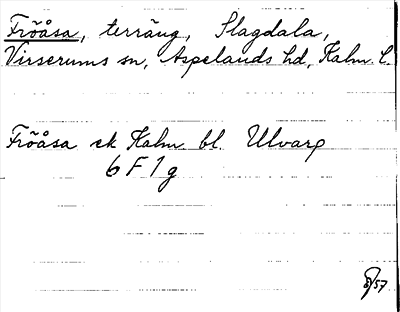 Fröåsa, terräng, Slagdala,
Virserums sn, Aspelands hd, Kalm. l.
Fröåsa ek Kalm. bl. Ulvarp
6 F 1 g
8/57